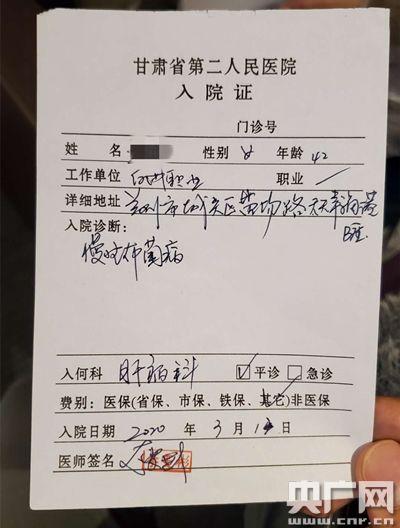 甘肃省第二人民医院
入院证
门诊号
姓名 性别 女 年龄 42
工作单位 职业
详细地址 兰州市城关区
入院诊断:
慢性布菌病
入何科 肝病科 平诊 急诊
费别:医保(省保、市保、铁保、其它)非医保
入院日期 2020 年 3 月 日
医师签名
央广网
www.cnr.cn